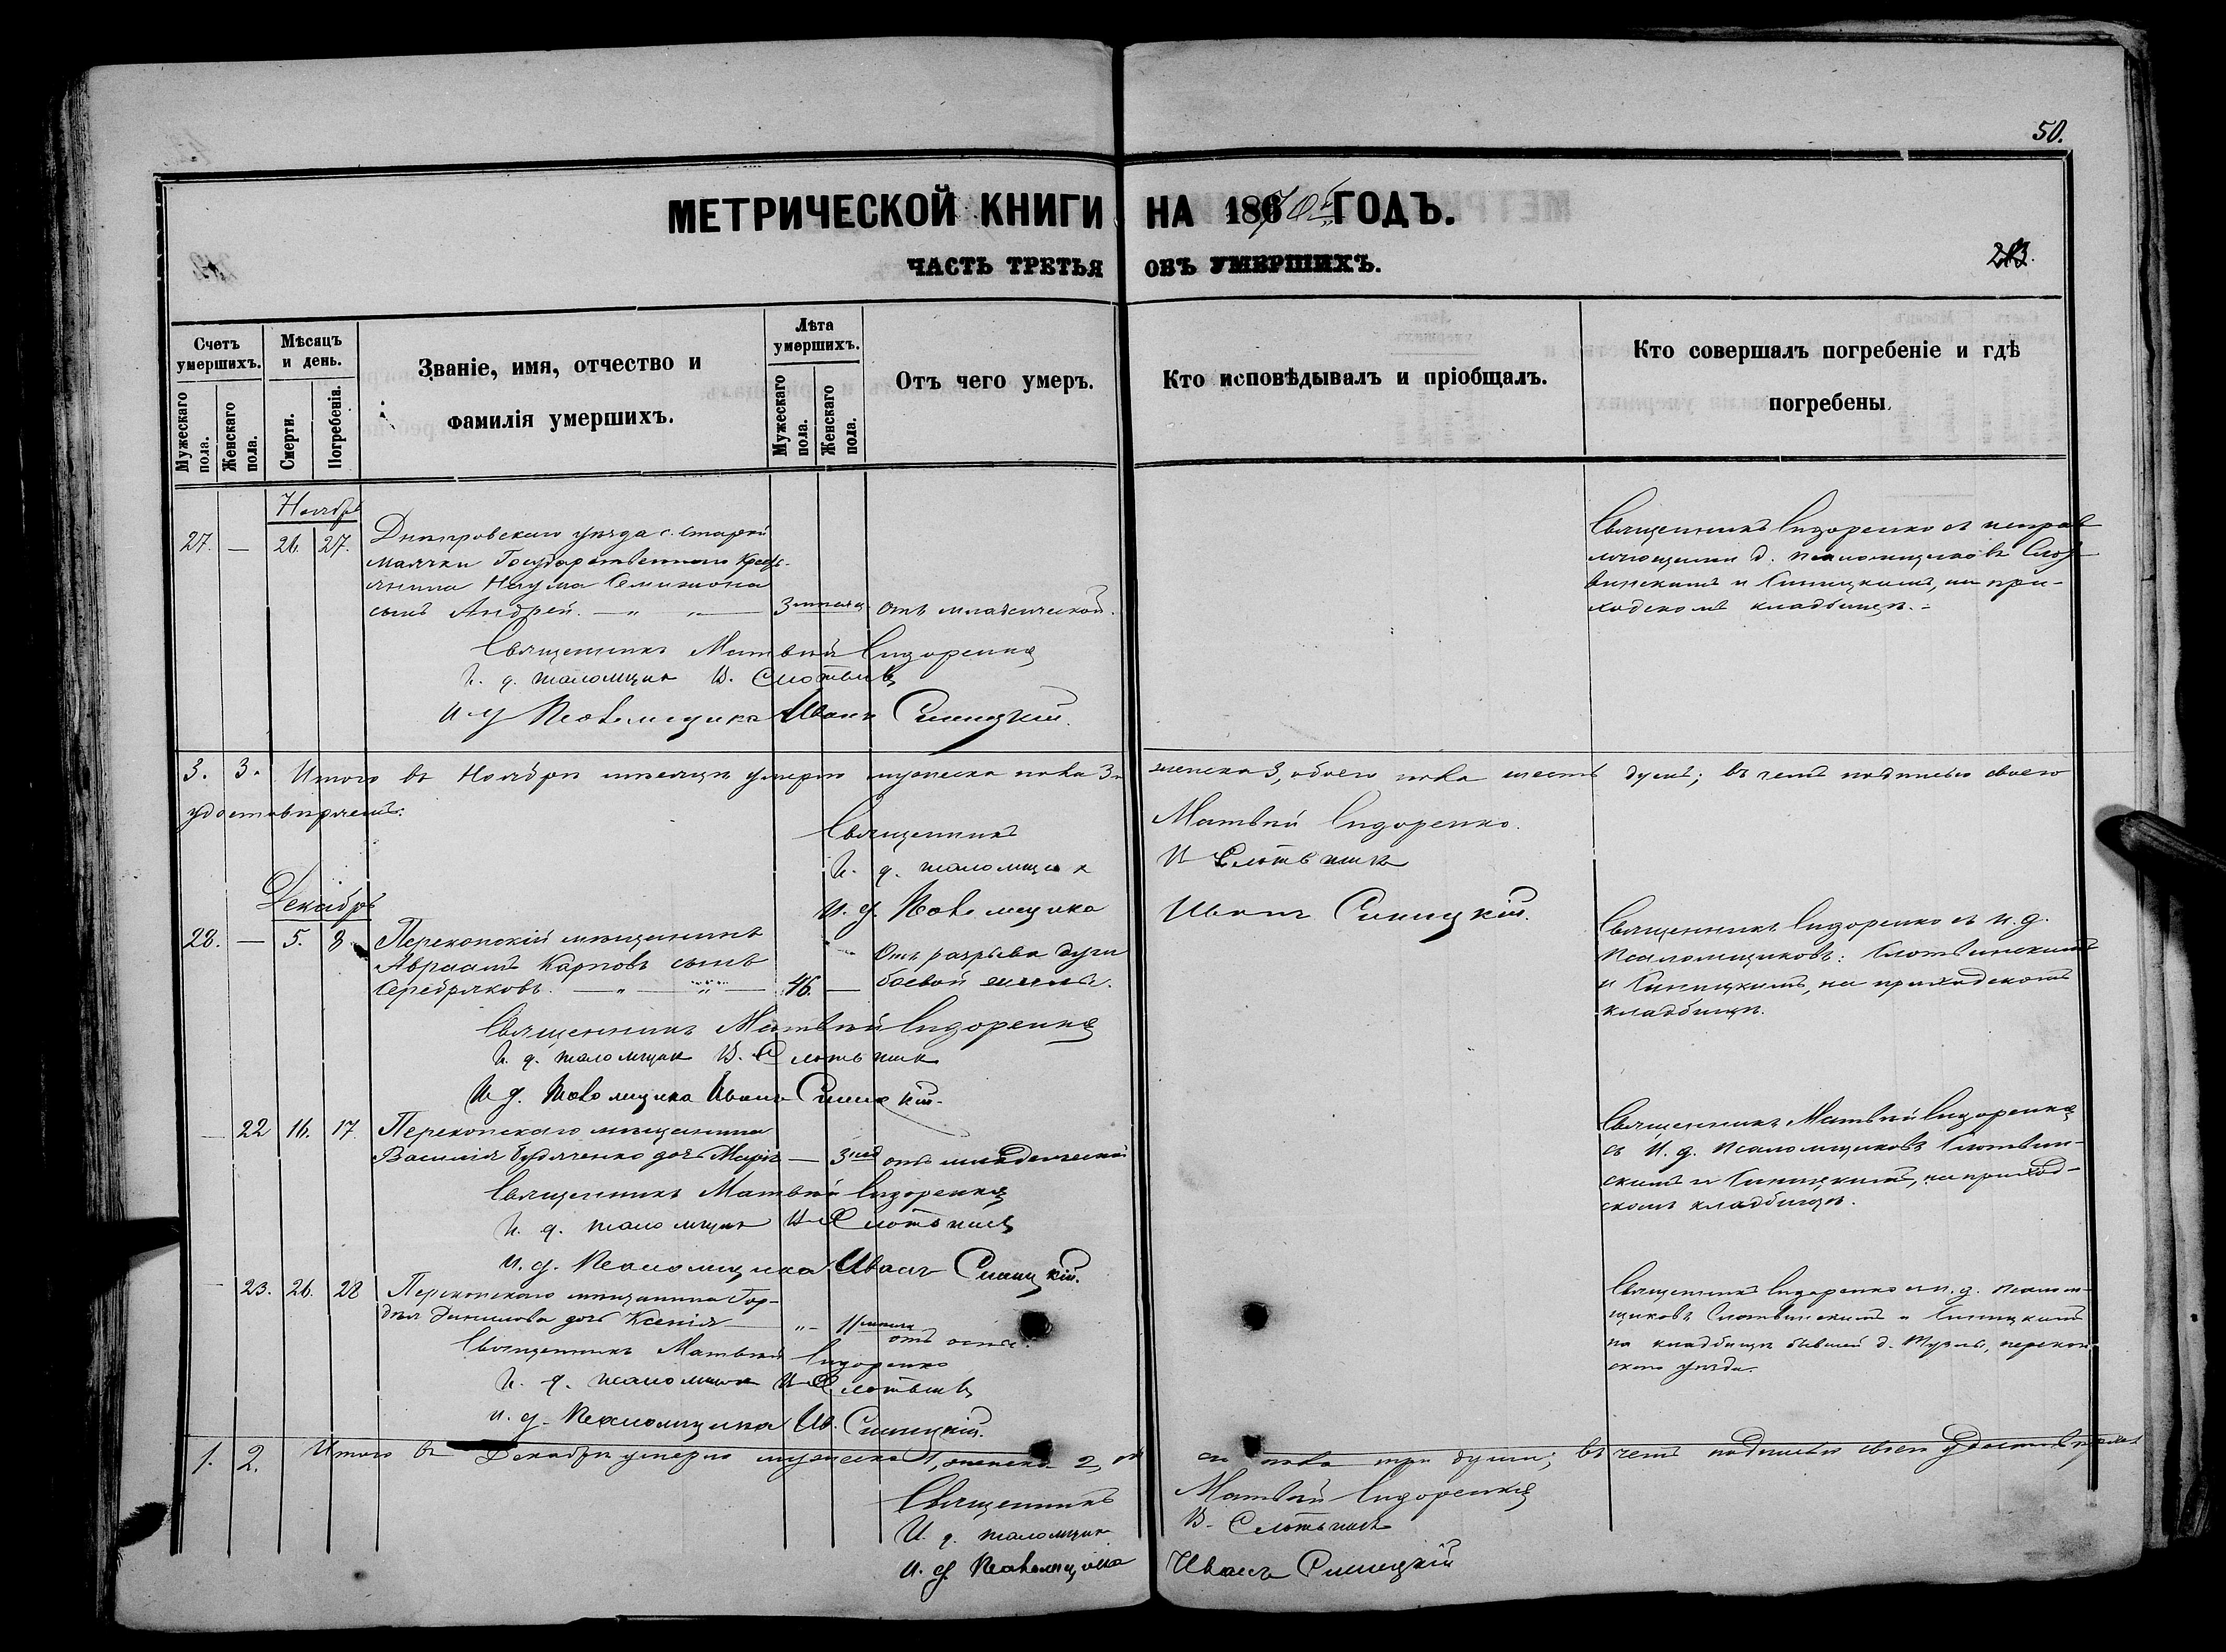 50.
МЕТРИЧЕСКОЙ КНИГИ НА 1870й ГОДЪ.
ЧАСТЬ ТРЕТЬЯ ОБЪ УМЕРШИХЪ.
Счетъ умершихъ.
Мужескаго пола.
Женскаго пола.
Мѣсяцъ и день.
Смерти.
Погребенія.
Званіе, имя, отчество и
фамилія умершихъ.
Лѣта умершихъ.
Мужескаго пола.
Женскаго пола.
Отъ чего умеръ.
Кто исповѣдывалъ и пріобщалъ.
Кто совершалъ погребеніе и гдѣ
погребены.
Ноябрь
27. — 26. 27. Днѣпровскаго уѣзда с. Старой
Маячки Государственнаго Кресть-
янина Наума
сынъ Андрей. — 3 мѣсяц отъ младенческой.
Священникъ Сидоренко съ исправ
ляющими д. псаломщиковъ Слот
винскимъ и Синицкимъ, на при-
ходскомъ кладбищѣ.
Священникъ Матвѣй Сидоренко
И. д. псаломщик В.
И д Псаломщика Иванъ Синицкій.
3. 3. Итого въ Ноябрѣ мѣсяцѣ умерло мужеска пола 3 женска 3, обоего пола шесть душъ; въ чемъ подписью своею
удостовѣряемъ:
Священникъ Матвѣй Сидоренко.
И. д. псаломщик
И. д. Псаломщика Иванъ Синицкій.
Декабрь
28. — 5. 8. Перекопскій мѣщанинъ
Авраамъ Карповъ сынъ
Серебряковъ. — 46. —
Отъ разрыва дуги
боевой
Священникъ Сидоренко съ и. д.
псаломщиковъ: Слотвинскимъ
и Синицкимъ, на приходскомъ
кладбищѣ.
Священникъ Матвѣй Сидоренко
И. д. псаломщик В.
И д. Псаломщика Иванъ Синицкій.
— 22 16. 17. Перекопскаго мѣщанина
Василія Будяченко дочь Марія — 3 нед отъ младенческой
Священникъ Матвѣй Сидоренко
съ И. д. псаломщиковъ Слотвин-
скимъ и Синицкимъ, на приход-
скомъ кладбищѣ.
Священникъ Матвѣй Сидоренко
И. д. псаломщик
И. д. Псаломщика Иванъ Синицкій.
— 23. 26. 28 Перекопскаго мѣщанина Гор-
дѣя Данилова дочь Ксенія — 11 отъ оспы.
Священникъ Сидоренко съ и. д. псалом-
щиковъ Слотвинскимъ и Синицкимъ
на кладбищѣ бывшей д. перекоп
скаго уѣзда.
Священникъ Матвѣй Сидоренко
И. д. псаломщик
и. д. Псаломщика Ив. Синицкій.
1. 2. Итого въ Декабрѣ умерло мужеска 1, женска 2, обоего пола три души; въ чемъ подписью своею удостовѣряемъ
Священникъ Матвѣй Сидоренко
И. д. псаломщик
и. д. Псаломщика Иванъ Синицкій